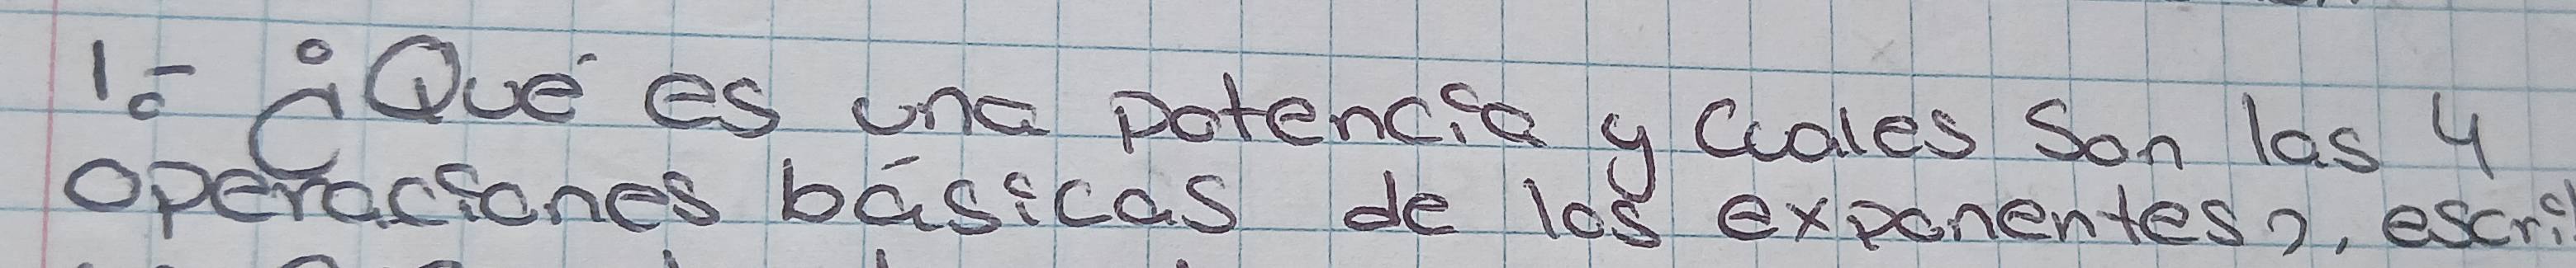 1.- ¿Qué es una potencia y Cuales Son las 4
operaciones básicas de los exponentes?, escri